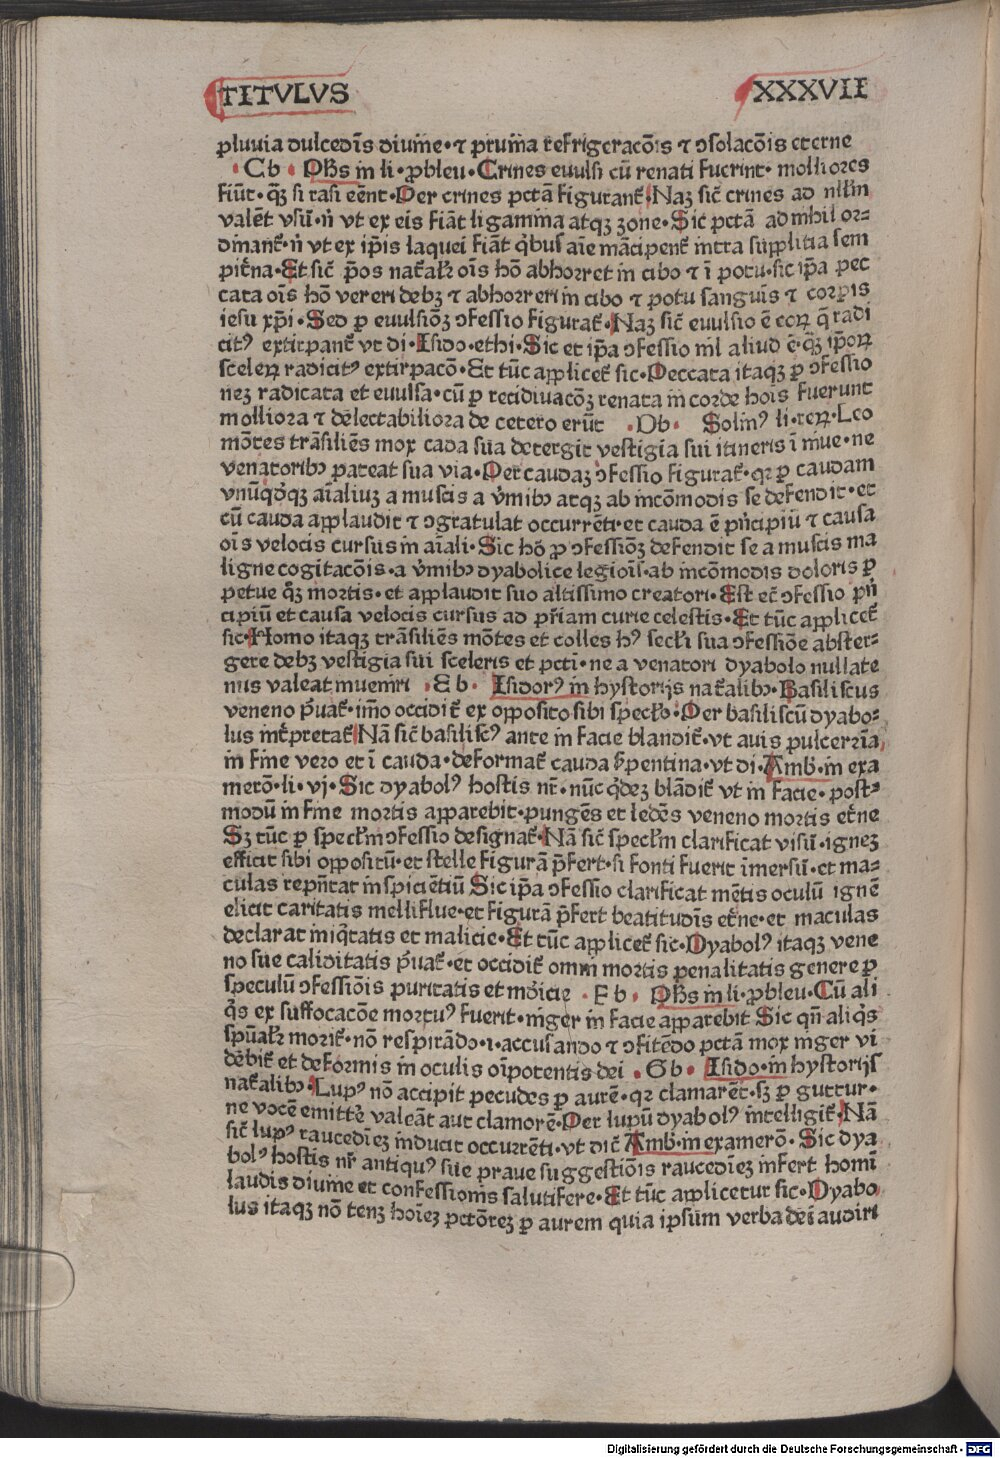 TITVLVS XXXVII
pluuia dulcedīs diuīne · ⁊ pruīna refrigeracōīs ⁊ ↄsolacōīs eterne
· Cb · Pħs in li · ꝓbleu · Crines euulsi cū renati fuerint · molliores
fiūt · qꝫ si rasi eēnt · Per crines pctā figurant᷑ · Naꝫ sic̄ crines ad nil̄m
valēt vsū · n̄ vt ex eis fiāt ligamīna atqꝫ zone · Sic pctā ad nihil or⸗
dīnant᷑ · n̄ vt ex ip̄is laquei fiāt qͥbus aīe mācipent᷑ intra supplitia sem
pit̄na · Et sic̄ p̄os nat᷑alr̄ oīs hō abhorret in cibo ⁊ ī potu · sic ip̄a pec
cata oīs hō vereri debꝫ ⁊ abhorreri in cibo ⁊ potu sanguīs ⁊ corꝑis
iesu xp̄i · Sed ꝑ euulsiōꝫ ↄfessio figurat᷑ · Naꝫ sic̄ euulsio ē eoꝝ q̄ radi
citꝰ extirpant᷑ vt di · Isido · ethi · Sic et ip̄a ↄfessio nl̄ aliud ē · qꝫ ip̄oꝝ
sceleꝝ radicitꝰ extirpacō · Et tūc applicet᷑ sic · Peccata itaqꝫ ꝑ ↄfessio
neꝫ radicata et euulsa · cū ꝑ recidiuacōꝫ renata in corde hoīs fuerunt
molliora ⁊ delectabiliora de cetero erūt · Db · Solinꝰ li · reꝝ · Leo
mōtes trāsiliēs mox cada sua detergit vestigia sui itineris ī niue · ne
venatoribꝰ pateat sua via · Per caudaꝫ ↄfessio figurat᷑ · qꝛ ꝑ caudam
vnūqͦdqꝫ aīaliuꝫ a muscis a v̄mibꝰ atqꝫ ab incōmodis se defendit · et
cū cauda applaudit ⁊ ↄgratulat occurrēti · et cauda ē pn̄cipiū ⁊ causa
oīs velocis cursus in aīali · Sic hō ꝑ ↄfessiōꝫ defendit se a muscis ma
ligne cogitacōis · a v̄mibꝰ dyabolice legioīs · ab incōmodis doloris ꝑ
petue qꝫ mortis · et applaudit suo altissimo creatori · Est et̄ ↄfessio pn̄
cipiū et causa velocis cursus ad pr̄iam curie celestis · Et tūc applicet᷑
sic · Homo itaqꝫ trāsiliēs mōtes et colles hꝰ secl̄i sua ↄfessiōe abster⸗
gere debꝫ vestigia sui sceleris et pcti · ne a venatori dyabolo nullate
nus valeat inueniri · Eb · Isidorꝰ in hystorijs nat᷑alibꝰ · Basiliscus
veneno p̄uat᷑ · im̄o occidit᷑ ex opposito sibi specl̄o · Per basiliscū dyabo⸗
lus int̄pretat᷑ · Nā sic̄ basilisꝰ ante in facie blandit᷑ · vt auis pulcerrīa
in fine vero et ī cauda · deformat᷑ cauda s̄pentina · vt di · Amb · in exa
merō · li · vj · Sic dyabolꝰ hostis nr̄ · nūc qͥdeꝫ blādit᷑ vt in facie · post⸗
modū in fine mortis apparebit · pungēs et ledēs veneno mortis et̄ne
Sꝫ tūc ꝑ specl̄m ↄfessio designat᷑ · Nā sic̄ specl̄m clarificat visū · igneꝫ
efficit sibi oppositū · et stelle figurā p̄fert · si fonti fuerit īmersū · et ma⸗
culas repn̄tat inspiciētiū Sic ip̄a ↄfessio clarificat mētis oculū ignē
elicit caritatis melliflue · et figurā p̄fert beatitudīs et̄ne · et maculas
declarat iniqͥtatis et malicie · Et tūc applicet᷑ sic · Dyabolꝰ itaqꝫ vene
no sue caliditatis p̄uat᷑ · et occidit᷑ omni mortis penalitatis genere ꝑ
speculū ↄfessiōis puritatis et mūdicie · Fb · Pħs in li · ꝓbleu · Cū ali
qͥs ex suffocacōe mortuꝰ fuerit · niger in facie apparebit Sic qn̄ aliqͥs
spūalr̄ morit᷑ · nō respirādo · ı · accusando ⁊ ↄfitēdo pctā mox niger vi
dēbit᷑ et deformis in oculis oīpotentis dei · Gb · Isido · in hystorijs
nat᷑alibꝰ · Lupꝰ nō accipit pecudes ꝑ aurē · qꝛ clamarēt · sꝫ ꝑ guttur ·
ne vocē emitt̄e valeāt aut clamorē · Per lupū dyabolꝰ intelligit᷑ · Nā
sic̄ lupꝰ raucedīeꝫ inducit occurrēti · vt dic̄ Amb · in examerō · Sic dya
bolꝰ hostis nr̄ antiquꝰ sue praue suggestiōis raucedīeꝫ infert homī
laudis diuine et confessionis salutifere · Et tūc applicetur sic · Dyabo
lus itaqꝫ nō teneꝫ hoīeꝫ pctōreꝫ ꝑ aurem quia ipsum verba dei audiri
Digitalisierung gefördert durch die Deutsche Forschungsgemeinschaft - DFG